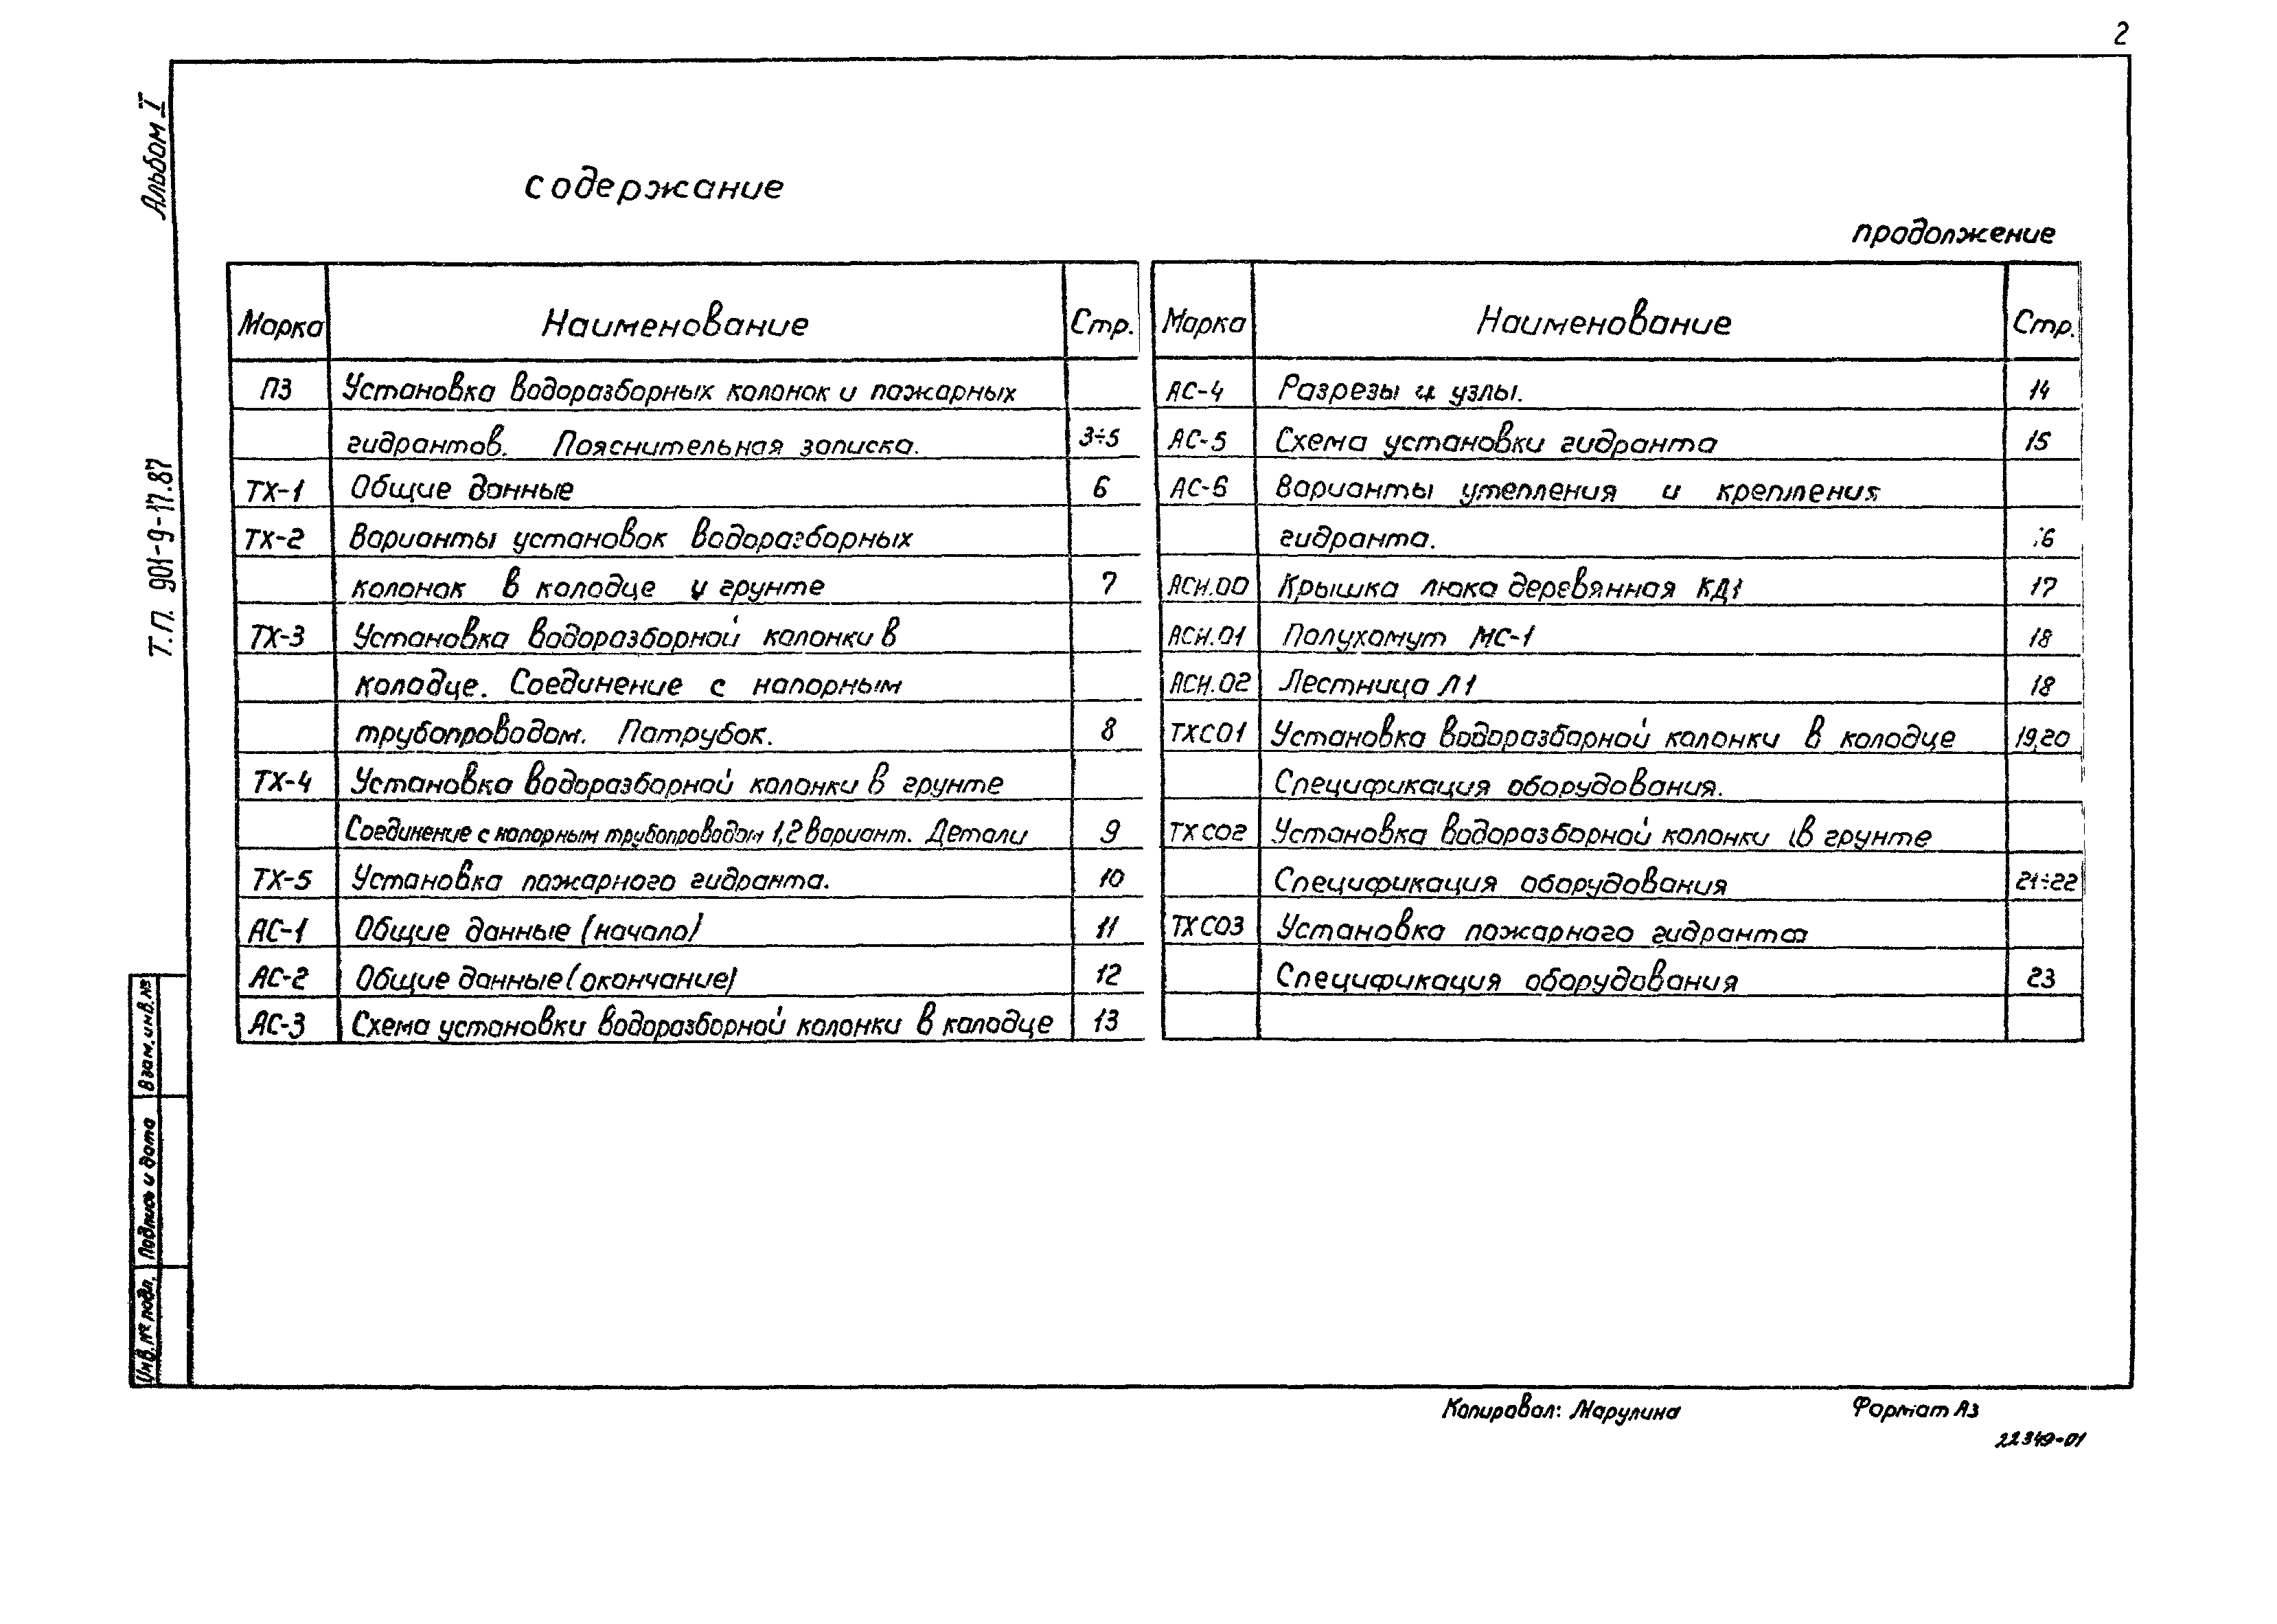 2
Альбом I
Т.П. 901-9-17.87
содержание
Марка Наименование Стр.
ПЗ Установка водоразборных колонок и пожарных
гидрантов. Пояснительная записка. 3÷5
ТХ-1 Общие данные 6
ТХ-2 Варианты установок водоразборных
колонок в колодце и грунте 7
ТХ-3 Установка водоразборной колонки в
колодце. Соединение с напорным
трубопроводом. Патрубок. 8
ТХ-4 Установка водоразборной колонки в грунте
Соединение с напорным трубопроводом 1,2 вариант. Детали 9
ТХ-5 Установка пожарного гидранта. 10
АС-1 Общие данные (начало) 11
АС-2 Общие данные (окончание) 12
АС-3 Схема установки водоразборной колонки в колодце 13
продолжение
Марка Наименование Стр.
АС-4 Разрезы и узлы. 14
АС-5 Схема установки гидранта 15
АС-6 Варианты утепления и крепления
гидранта.
АСИ.00 Крышка люка деревянная КД1 17
АСИ.01 Полухомут МС-1 18
АСИ.02 Лестница Л1 18
ТХС01 Установка водоразборной колонки в колодце 19,20
Спецификация оборудования.
ТХС02 Установка водоразборной колонки в грунте
Спецификация оборудования 21÷22
ТХС03 Установка пожарного гидранта
Спецификация оборудования 23
Взам.инв.№
Подпись и дата
Инв.№ подл.
Копировал: Марулина Формат А3
22349-01